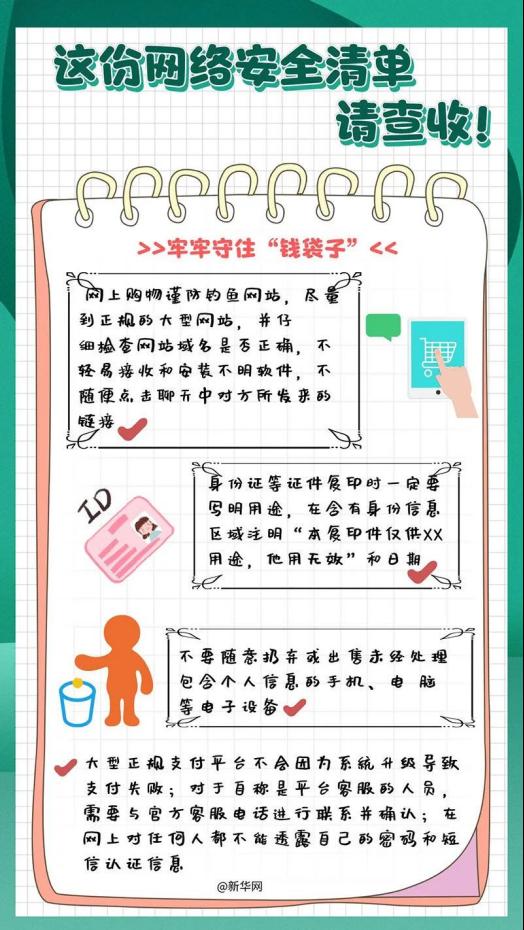 这份网络安全清单
请查收！
>>牢牢守住“钱袋子”<<
网上购物谨防钓鱼网站，尽量
到正规的大型网站，并仔
细检查网站域名是否正确，不
轻易接收和安装不明软件，不
随便点击聊天中对方所发来的
链接
ID
身份证等证件复印时一定要
写明用途，在含有身份信息
区域注明“本复印件仅供XX
用途，他用无效”和日期
不要随意扔弃或出售未经处理
包含个人信息的手机、电 脑
等电子设备
大型正规支付平台不会因为系统升级导致
支付失败；对于自称是平台客服的人员，
需要与官方客服电话进行联系并确认；在
网上对任何人都不能透露自己的密码和短
信认证信息
@新华网